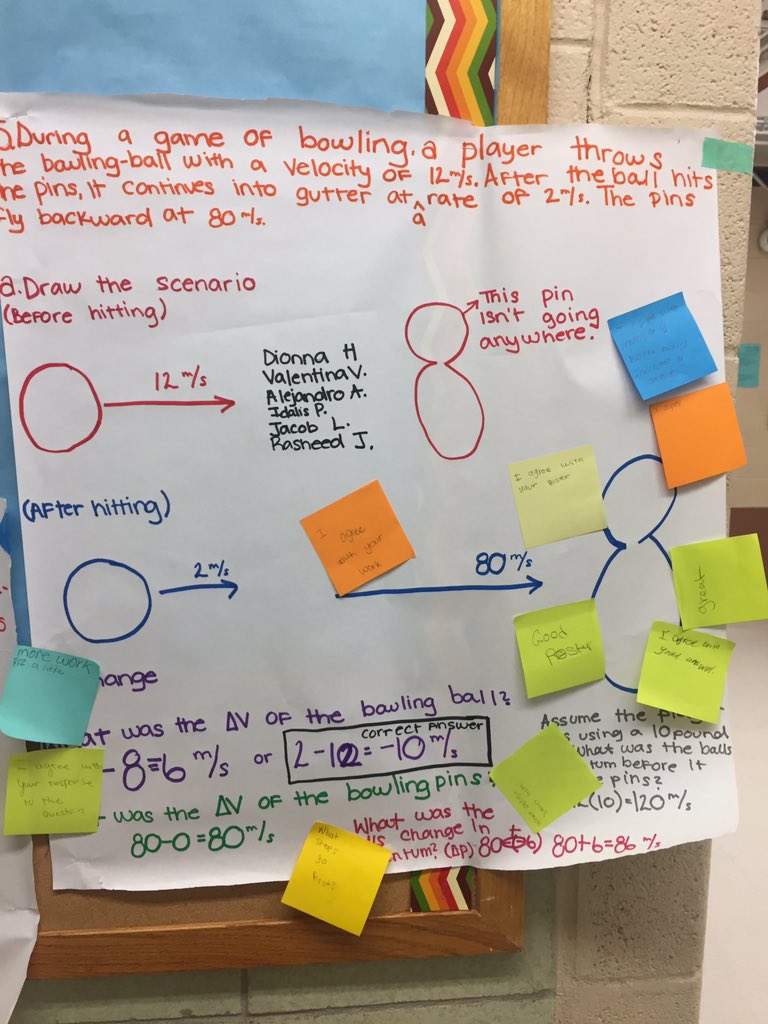 5. During a game of bowling, a player throws
the bowling-ball with a velocity of 12 m/s. After the ball hits
he pins, it continues into gutter at ^ rate of 2 m/s. The pins
a
fly backward at 80 m/s.
a. Draw the scenario
(Before hitting)
This pin
isn't going
anywhere.
12 m/s
Dionna H
Valentina V.
Alejandro A.
Idalis P.
Jacob L.
Rasheed J.
I agree with
your poster
(After hitting)
2 m/s
I agree
with your
work
80 m/s
great
Good
Poster
I agree with
good answer.
more work
a little
hange
at was the ΔV of the bowling ball?
-8=6 m/s or
correct answer
2-12=-10 m/s
Assume the
s using a 10 pound
what was the balls
tum before it
e pins?
2(10)=120 m/s
I agree with
your response
to the
question
was the ΔV of the bowling pins?
80-0=80 m/s
What was the
change in
ntum? (Δp) 80 80+6=86 m/s
What
steps
go
first?